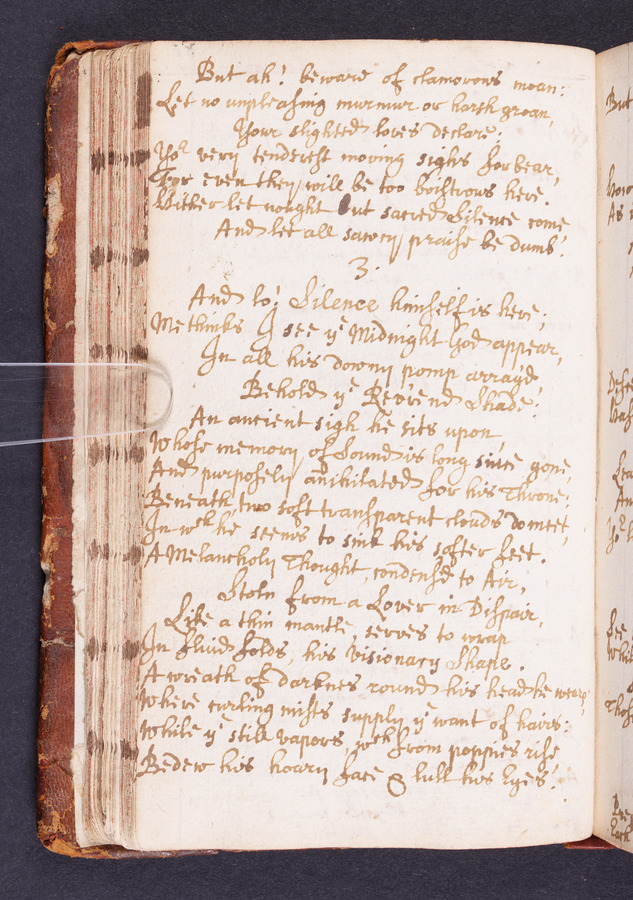 But ah! beware of clamorous moan:
Let no unpleasing murmur or harsh groan,
Your slighted loves declare:
Yor very tenderest moving sighs forbear,
For even they, will be too boistrous here.
Hither let nought but sacred Silence come,
And let all sawcy praise be dumb.
3.
And lo! Silence himself is here;
Methinks I see ye Midnight God appear,
In all his downy pomp arrayd,
Behold ye Rev'rend Shade:
An ancient sigh he sits upon,
Whose memory of Sound is long since gone,
And purposely anihilated for his Throne:
Beneath, two soft transparent clouds do meet,
In wch he seems to sink his softer feet.
A Melancholy Thought, condens'd to Air,
Stoln from a Lover in Dispair,
Like a thin mantle, serves to wrap
In fluid folds, his visionary Shape.
A wreath of darknes round his head he wears,
Where curling mists supply ye want of hairs:
While ye still vapors, wch from poppies rise
Bedew his hoary face & lull his Eyes.
But
As